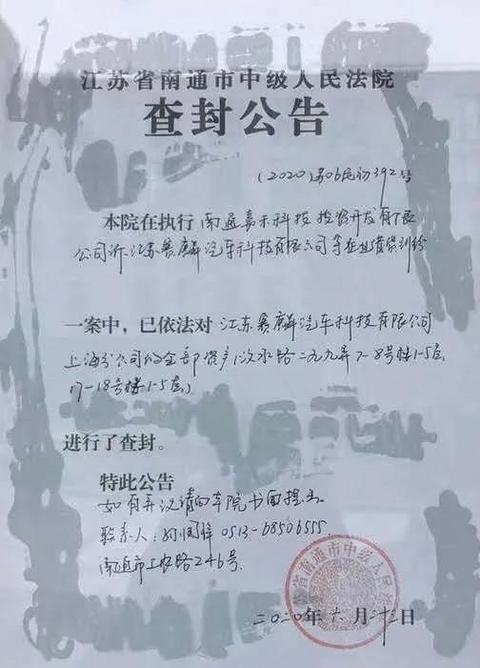 江苏省南通市中级人民法院
查封公告
(2020)苏06民初392号
本院在执行 南通嘉禾科技投资开发有限
公司诉江苏赛麟汽车科技有限公司等企业借贷纠纷
一案中，已依法对 江苏赛麟汽车科技有限公司
上海分公司的全部资产(汶水路二九九弄7-8号楼1-5层,
17-18号楼1-5层)
进行了查封。
特此公告
如有异议请向本院书面提出
联系人: 0513-68506555
南通市工农路246号
省南通市中级人民法
二〇二〇年六月二十三日